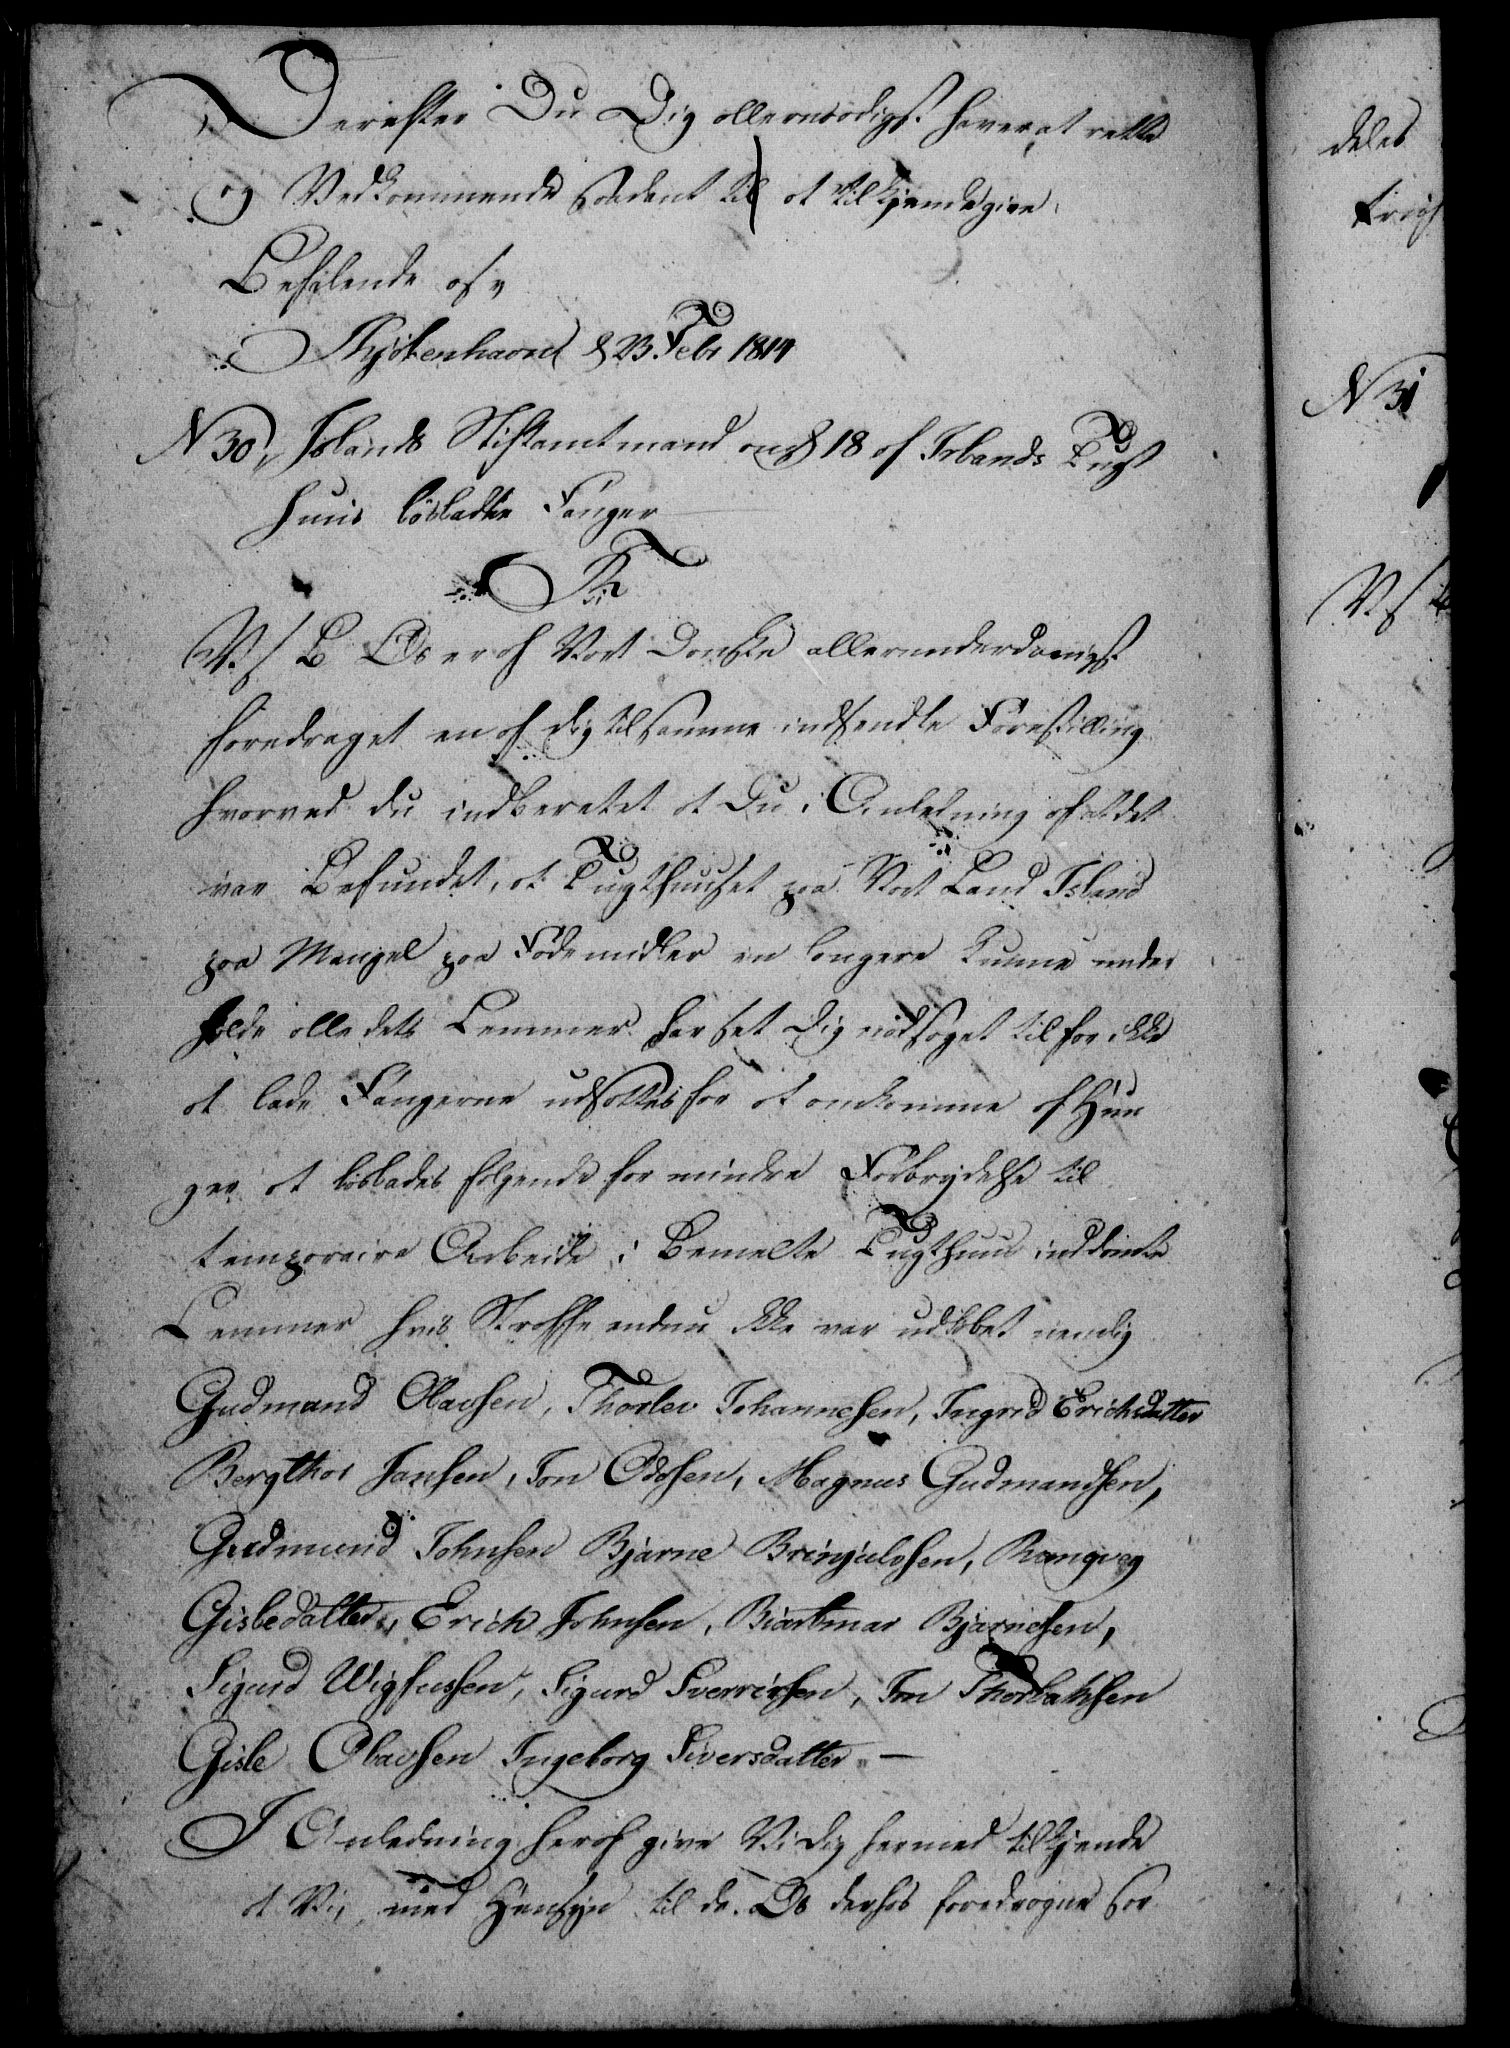 Derefter Du Dig allernaadigst haver at rette
og Vedkommende saadant til at tilkjendegive.
Befalende osv
Kjøbenhavn d 23 Febr 1814
N 30, Islands Stiftamtmand ang 18 af Islands Tugt
huus løsladte Fanger
Fr
V. S B Os er af Vort Danske allerunderdanigst
foredraget en af dig til samme indsendte Forestilling
hvorved du indberetet at Du i Anledning af at det
var Befundet, at Tugthuuset paa Vort Land Island
paa Mangel paa Fødemidler en længere kunne under
holde alle dets Lemmer har set Dig nødsaget til for ikke
at lade Fangerne udsættes for at omkomme af Hun
ger at løslades følgende for mindre Forbrydelse til
temporaire Arbeide i Bemelte Tugthuus inddømte
Lemmer hvis Straffe endnu ikke var udløbet nemlig
Gudmand Olavsen, Thorlev Johannesen, Ingrid Erichsdatter
Bergthor Jansen, Jon Odsen, Magnus Gudmandsen,
Gudmund Johnsen Bjarne Brinjulvsen, Rangveg
Gisledatter, Erich Johnsen, Biartmar Bjarnesen,
Sigurd Wigfussen, Sigurd Sverrirsen, Jon Thorlaksen
Gisle Olavsen Ingeborg Siversdatter —
I Anledning heraf give Vi dig hermed tilkjende
at Vi, med Hensyn til de Os derhos foredragne sær
deles
N 31
V. S